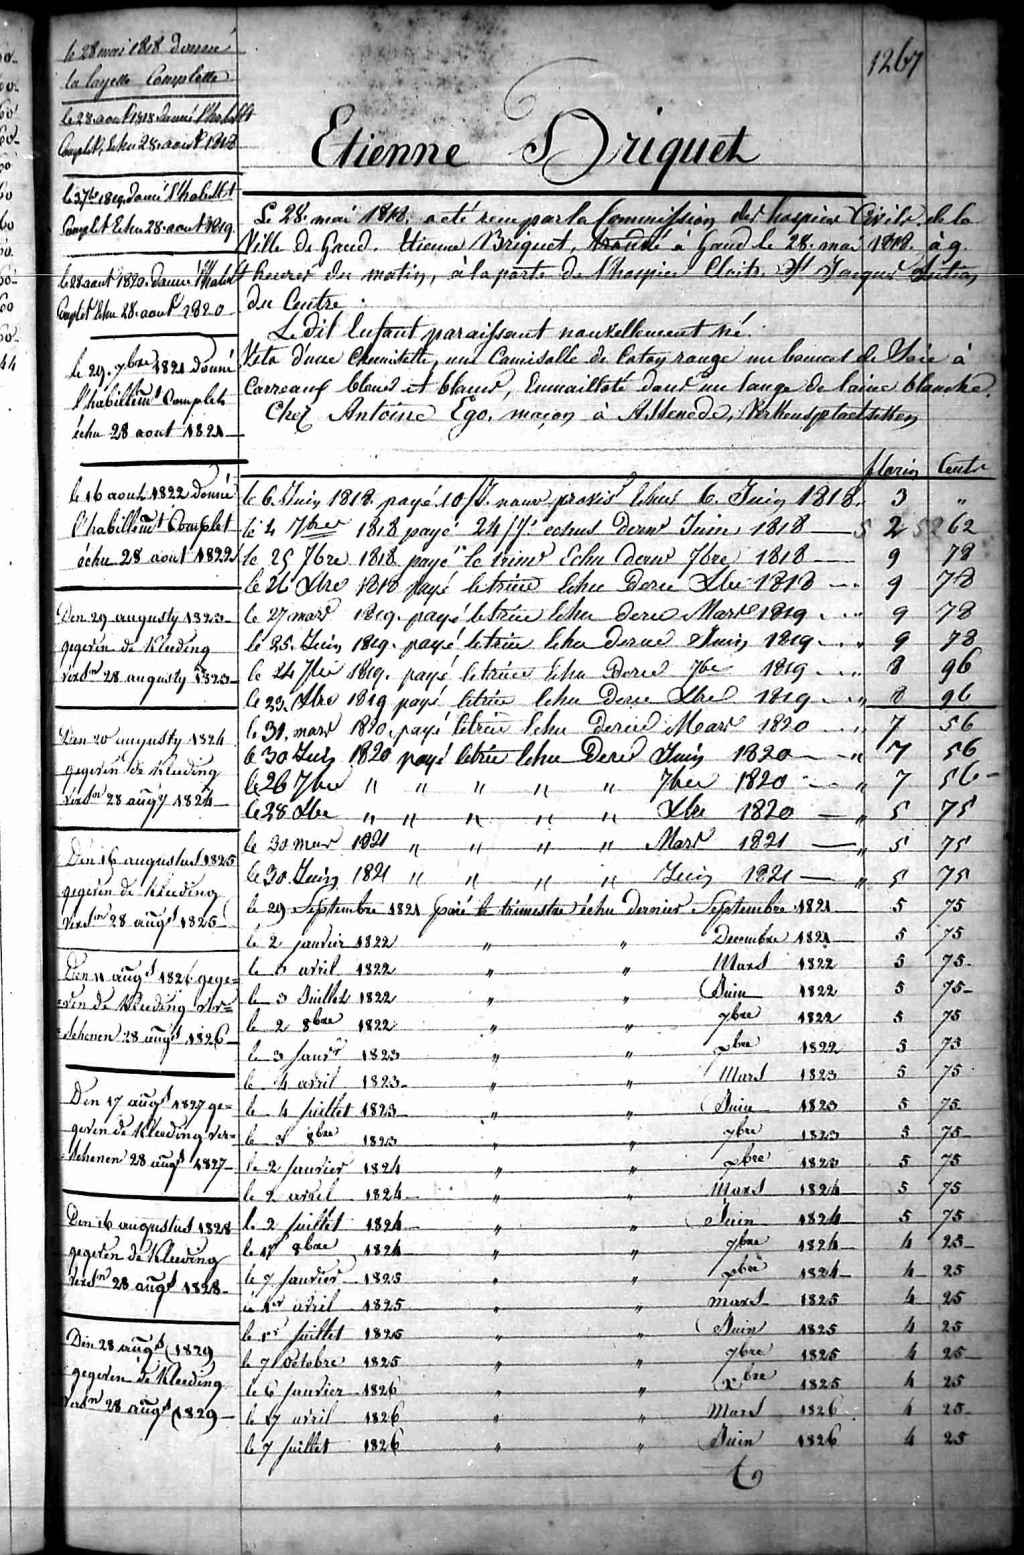 1267
Etienne Briquet
le 28 mai 1818 donné
la layette Complette
le 28 aout 1818 donné l'habillt
Complet, échu 28 aout 1818
le 3 7bre 1819 donné l'habillt
Complet Echu 28 aout 1819
le 28 aout 1820 donné l'habilt
Complet échu 28 aout 1820
le 29 7bre 1821 donné
l'habillemt Complet
échu 28 aout 1821
le 16 aout 1822 donné
l'habillemt Complet
échu 28 aout 1822
Den 29 augusty 1823
gegeven de Kleeding
versn 28 augusty 1823
Den 20 augusty 1824
gegeven de Kleeding
versn 28 augy 1824
Den 16 augustus 1825
gegeven de Kleeding
versn 28 augs 1825
Den 11 augs 1826 gege=
=ven de Kleeding ver=
=schenen 28 augs 1826
Den 17 augs 1827 ge=
geven de Kleeding ver=
=schenen 28 augs 1827
Den 16 augustus 1828
gegeven de Kleeding
versn 28 augs 1828
Den 28 augs 1829
gegeven de Kleeding
versn 28 augs 1829
Le 28 mai 1818 a été remi par la Commission des hospices Civils de la
Ville de Gand, Etienne Briquet, trouvé à Gand le 28 mai 1818 à 9
heures du matin, à la porte de l'hospice St Jacques Section
du Centre.
Le dit Enfant paraissant nouvellement né
Vetu d'une Chemisette, une Camisolle de Coton rouge un bonnet de Soie à
Carreaux bleus et blancs, Enmailloté dans un lange de laine blanche.
Chez Antoine Ego, maçon à Assenede,
florins Cents
le 6 Juin 1818 payé 10 échus 6 Juin 1818 3 "
le 4 7bre 1818 payé 24 echus dern Juin 1818 2 62
le 25 7bre 1818 payé le trim Echu dern 7bre 1818 9 78
le 26 Xbre 1818 payé le trim Echu dern Xbre 1818 9 78
le 27 mars 1819 payé le trim Echu dern Mars 1819 9 78
le 25 Juin 1819 payé le trim Echu dern Juin 1819 9 78
le 24 7bre 1819 payé le trim Echu dern 7bre 1819 8 96
le 23 Xbre 1819 payé le trim Echu dern Xbre 1819 8 96
le 31 mars 1820 payé le trim Echu dern Mars 1820 7 56
le 30 Juin 1820 payé le trim Echu dern Juin 1820 7 56
le 26 7bre " " " " " 7bre 1820 7 56
le 28 Xbre " " " " " Xbre 1820 5 75
le 30 mars 1821 " " " " Mars 1821 5 75
le 30 Juin 1821 " " " " " Juin 1821 5 75
le 29 Septembre 1821 payé le trimestre échu dernier Septembre 1821 5 75
le 2 janvier 1822 " " Decembre 1821 5 75
le 5 avril 1822 " " Mars 1822 5 75
le 3 Juillet 1822 " " Juin 1822 5 75
le 2 8bre 1822 " " 7bre 1822 5 75
le 3 janvr 1823 " " Xbre 1822 5 75
le 4 avril 1823 " " Mars 1823 5 75
le 4 juillet 1823 " " Juin 1823 5 75
le 3 8bre 1823 " " 7bre 1823 5 75
le 2 janvier 1824 " " Xbre 1823 5 75
le 2 avril 1824 " " Mars 1824 5 75
le 2 juillet 1824 " " Juin 1824 5 75
le 1r 8bre 1824 " " 7bre 1824 4 25
le 7 janvier 1825 " " Xbre 1824 4 25
le 1er avril 1825 " " mars 1825 4 25
le 1r juillet 1825 " " Juin 1825 4 25
le 7 octobre 1825 " " 7bre 1825 4 25
le 6 janvier 1826 " " Xbre 1825 4 25
le 17 avril 1826 " " Mars 1826 4 25
le 7 juillet 1826 " " Juin 1826 4 25